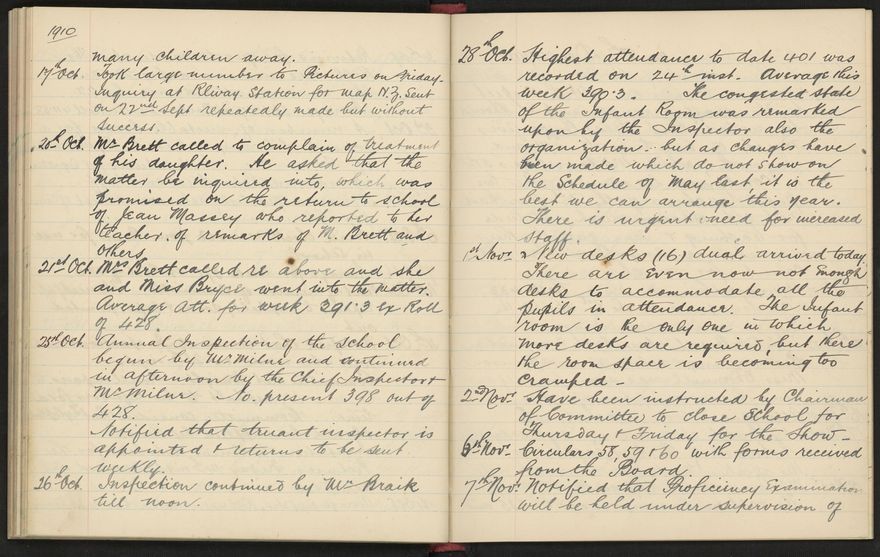 1910
many children away.
17th Oct. Took large number to Pictures on Friday.
Inquiry at Rlway Station for map N.Z. Sent
on 22nd Sept repeatedly made but without
success.
20th Oct. Mr Brett called to complain of treatment
of his daughter. He asked that the
matter be inquired into, which was
promised on the return to school
of Jean Massey who reported to her
teacher, of remarks of M. Brett and
others.
21st Oct. Mrs Brett called re above and she
and Miss Bryce went into the matter.
Average Att. for week 391.3 ex Roll
of 428.
25th Oct. Annual Inspection of the School
begun by Mr Milne and continued
in afternoon by the Chief Inspector &
Mr Milne. No. present 398 out of
428.
Notified that truant inspector is
appointed & returns to be sent
weekly.
26th Oct. Inspection continued by Mr Braik
till noon.
28th Oct. Highest attendance to date 401 was
recorded on 24th inst. Average this
week 390.3. The congested state
of the Infant Room was remarked
upon by the Inspector also the
organization: but as changes have
been made which do not show on
the Schedule of May last, it is the
best we can arrange this year.
There is urgent need for increased
staff.
1st Novr. New desks (16) dual arrived today.
There are even now not enough
desks to accommodate all the
pupils in attendance. The Infant
room is the only one in which
more desks are required, but there
the room space is becoming too
cramped –
2nd Novr. Have been instructed by Chairman
of Committee to close School for
Thursday & Friday for the Show –
6th Novr. Circulars 58, 59 & 60 with forms received
from the Board.
7th Novr. Notified that Proficiency Examination
will be held under supervision of